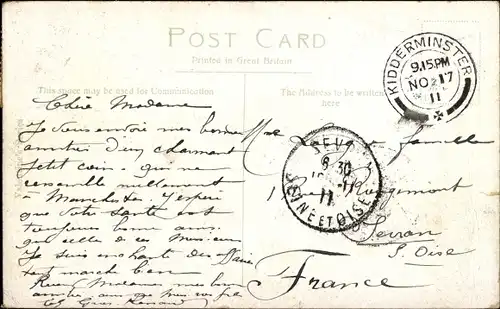 POST CARD
Printed in Great Britain
This space may be used for Communication
The Address to be written here
KIDDERMINSTER
9.15 PM
NO 17
11
Chère Madame
Je vous envoie mes bonnes
amitiés d'un charmant
petit coin qui ne
ressemble nullement
à Manchester. J'espère
que votre santé est
toujours bonne ainsi
que celle de ces Messieurs
Je suis enchanté des affaires
tout marche bien
Recevez Madame mes bonnes
SEV
6 30
11
SEINE ET OISE
Famille
Rougemont
Sevran
S. Oise
France